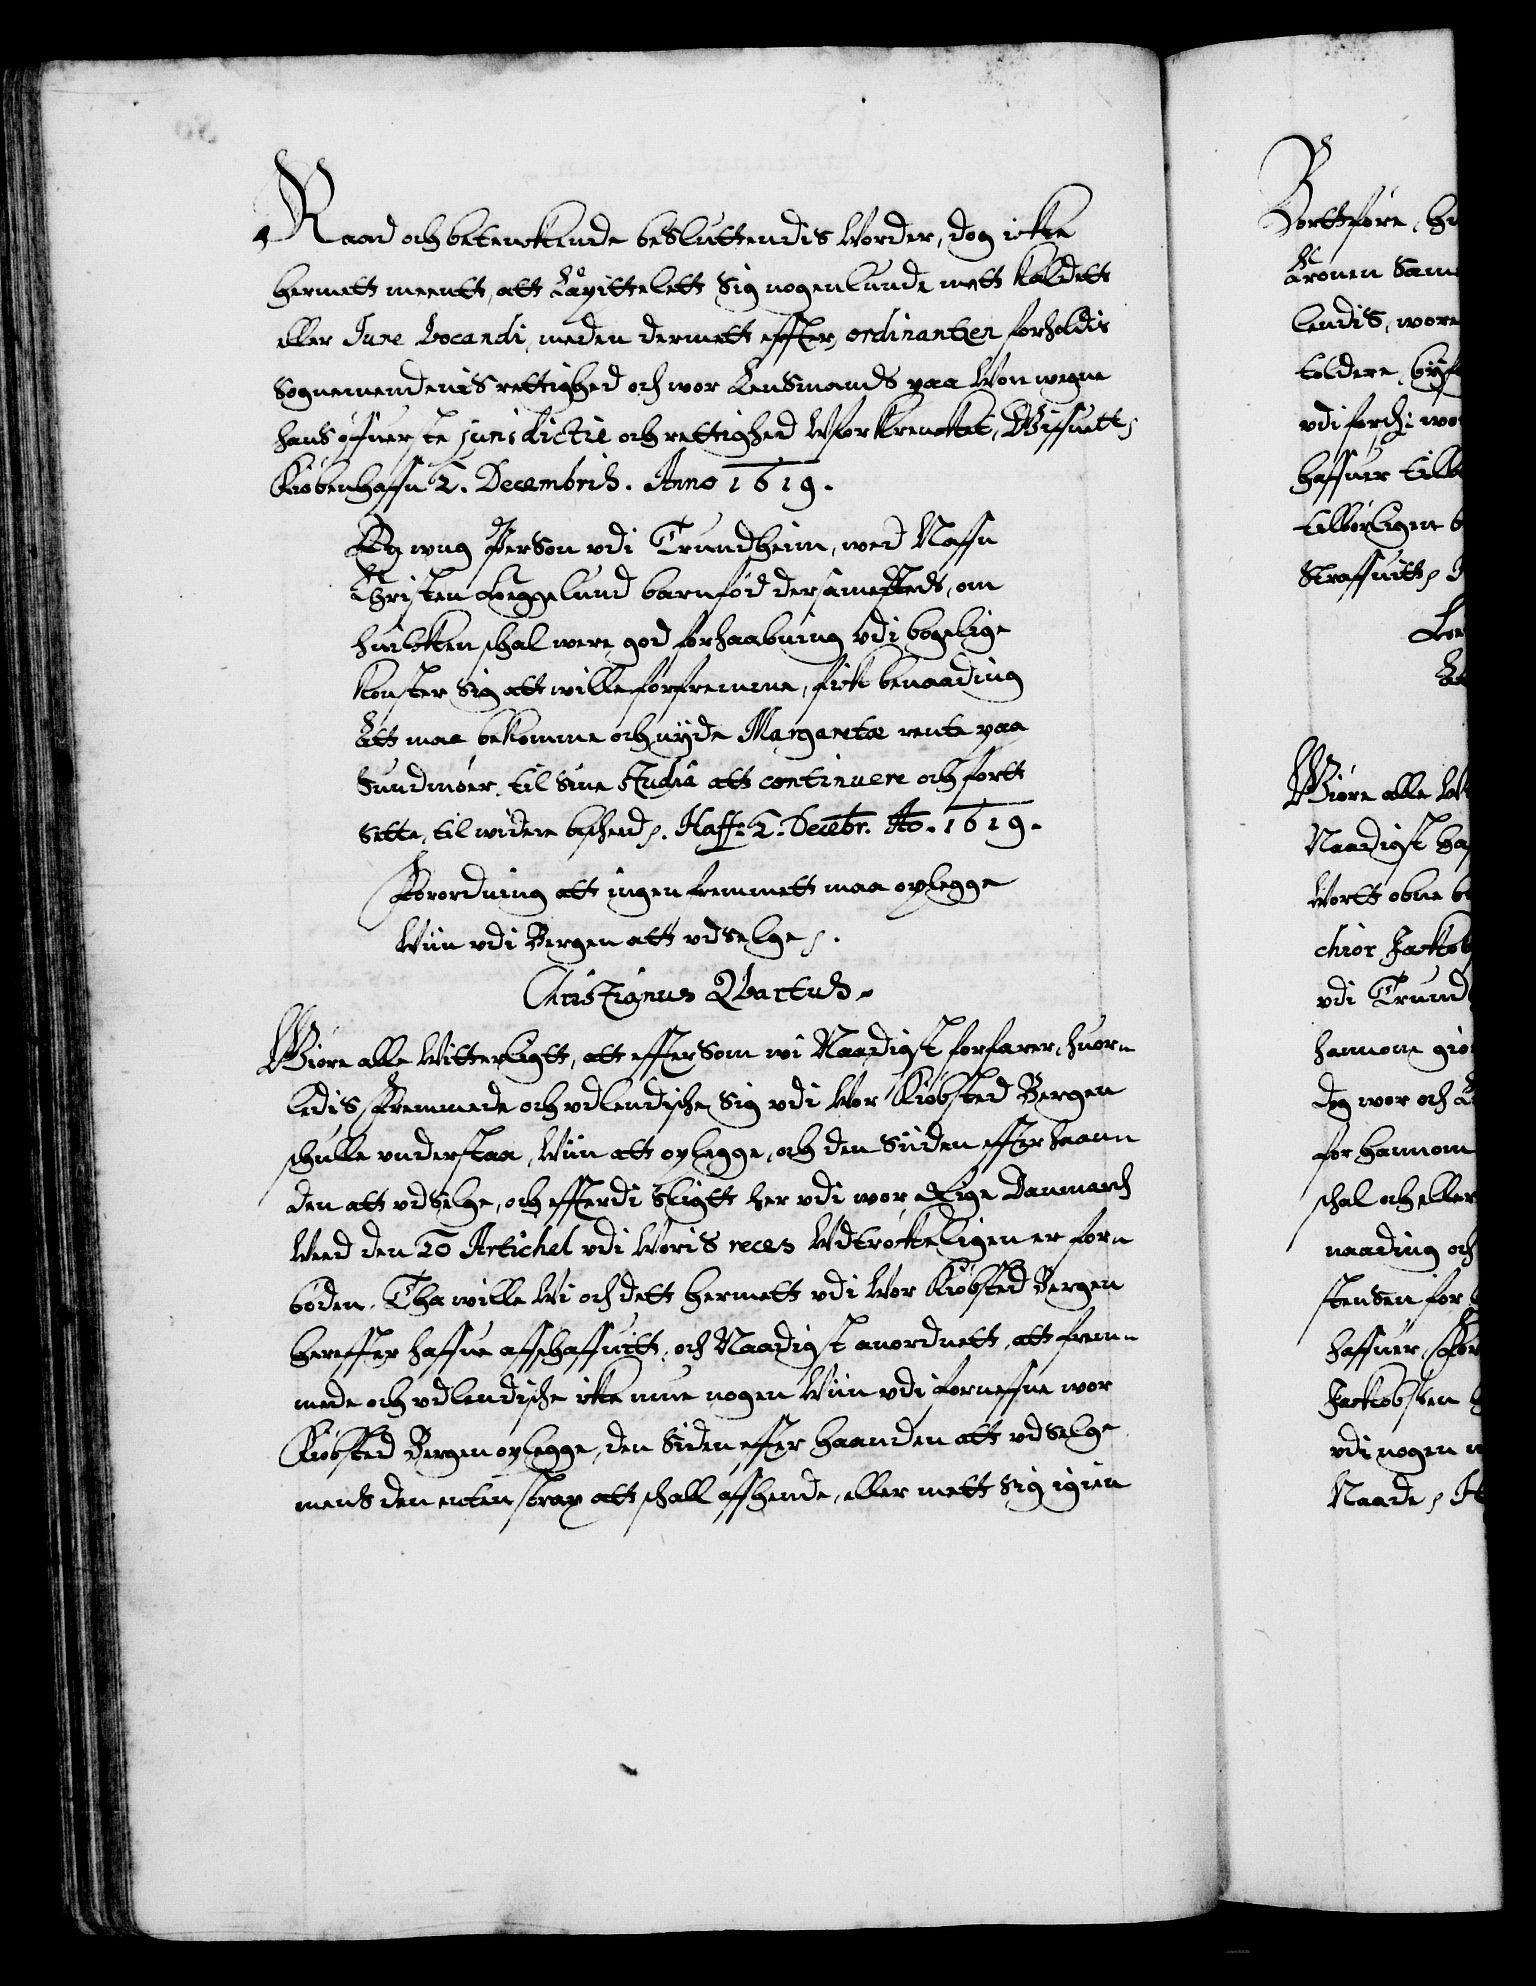 Raad och betenckende besluttendis Worder, dog icke
hermett meentt, att Capittelett sig nogenlunde mett kaldett
eller Jure Vocandi, meden dermett effter ordinantzen forholdis
Sognemendenis rettighed och wor Lensmands paa Wor wegne
hans öffuerste jurisdictie och rettighed Wforkrencket, Giffuett
Kiøbenhaffn 2. Decembris. Anno 1619.
En wng Person vdi Trundheim, wed Naffn
Christen Leggelund barnfød dersamesteds, om
huilcken schal were god forhaabning vdi bogelige
konster sig att wille forfremme, fick benaading
Att maa bekomme och nyde Margaretæ rente paa
Sundmøer, til sine studia att continuere och fortt
sette, til widere bescheed. Haff: 2. Decēbr. Ao. 1619.
Forordning att ingen fremmett maa oplegge
Wiin vdi Bergen att vdselge.
Christianus Qvartus.
Giøre alle Witterligtt, att efftersom wi Naadigst forfarer, huor-
ledis fremmede och vdlendische sig vdi Wor Kiøbsted Bergen
schulle vnderstaa, Wiin att oplegge, och den siiden effter haann
den att vdselge, och effterdi sligtt her vdi wor Rige Danmarch
Weed den 20 Artichel vdi Woris reces Wdtrøckeligen er for-
böden. Tha wille Wi och dett hermett vdi Wor Kiøbsted Bergen
hereffter haffue affschaffuitt, och Naadigst anordnett, att frem-
mede och vdlendische icke mue nogen Wiin vdi forneffne wor
Kiøbsted Bergen oplegge, den siden effter haanden att vdselge
mens den enten strax att schall affhende, eller mett sig igien
Borttføre,
Cronen
lendis, wore
toldere,
haffuer
tilbørligen
Straffuitt,
Giøre alle
Naadigst
Wortt obne
chior Jackob
vdi Trund
hannom
Dog wor och
for hannom
schal och eller
naading och
stensen for
haffuer,
Jackobsten
vdi nogen
Naade,